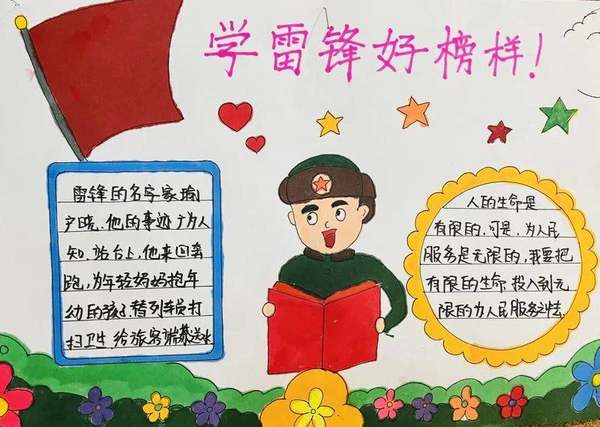 学雷锋好榜样!
雷锋的名字家喻
户晓.他的事迹广为人
知.站台上,他来回奔
跑,为年轻妈妈抱年
幼的孩子替列车员打
扫卫生 给旅客端茶送水
人的生命是
有限的,可是,为人民
服务是无限的,我要把
有限的生命投入到无
限的为人民服务之中去.